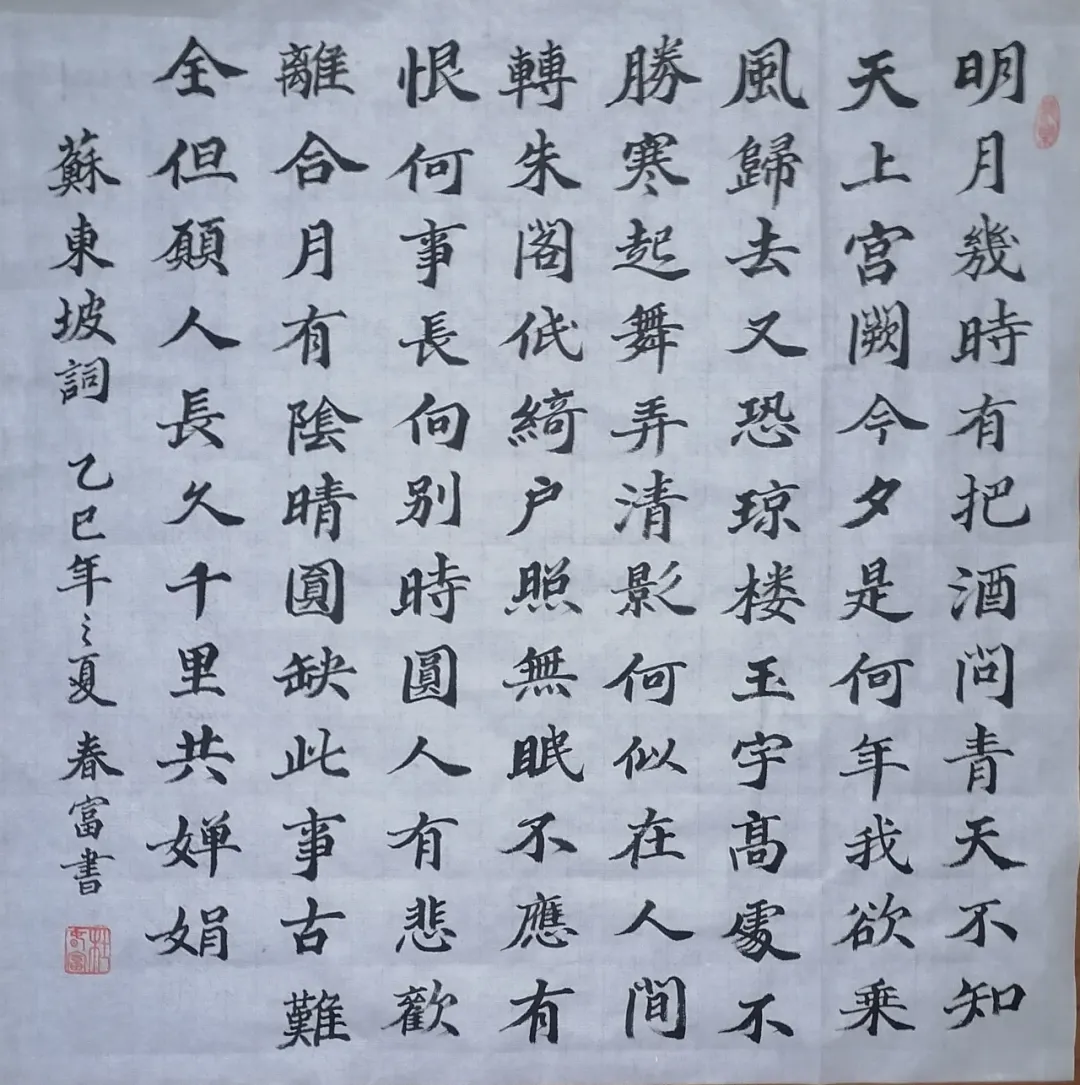 明月幾時有把酒問青天不知
天上宮闕今夕是何年我欲乗
風歸去又恐琼楼玉宇髙處不
勝寒起舞弄清影何似在人間
轉朱阁低綺户照無眠不應有
恨何事長向别時圓人有悲歡
離合月有陰晴圓缺此事古難
全但願人長久千里共婵娟
蘇東坡詞 乙巳年之夏 春富書